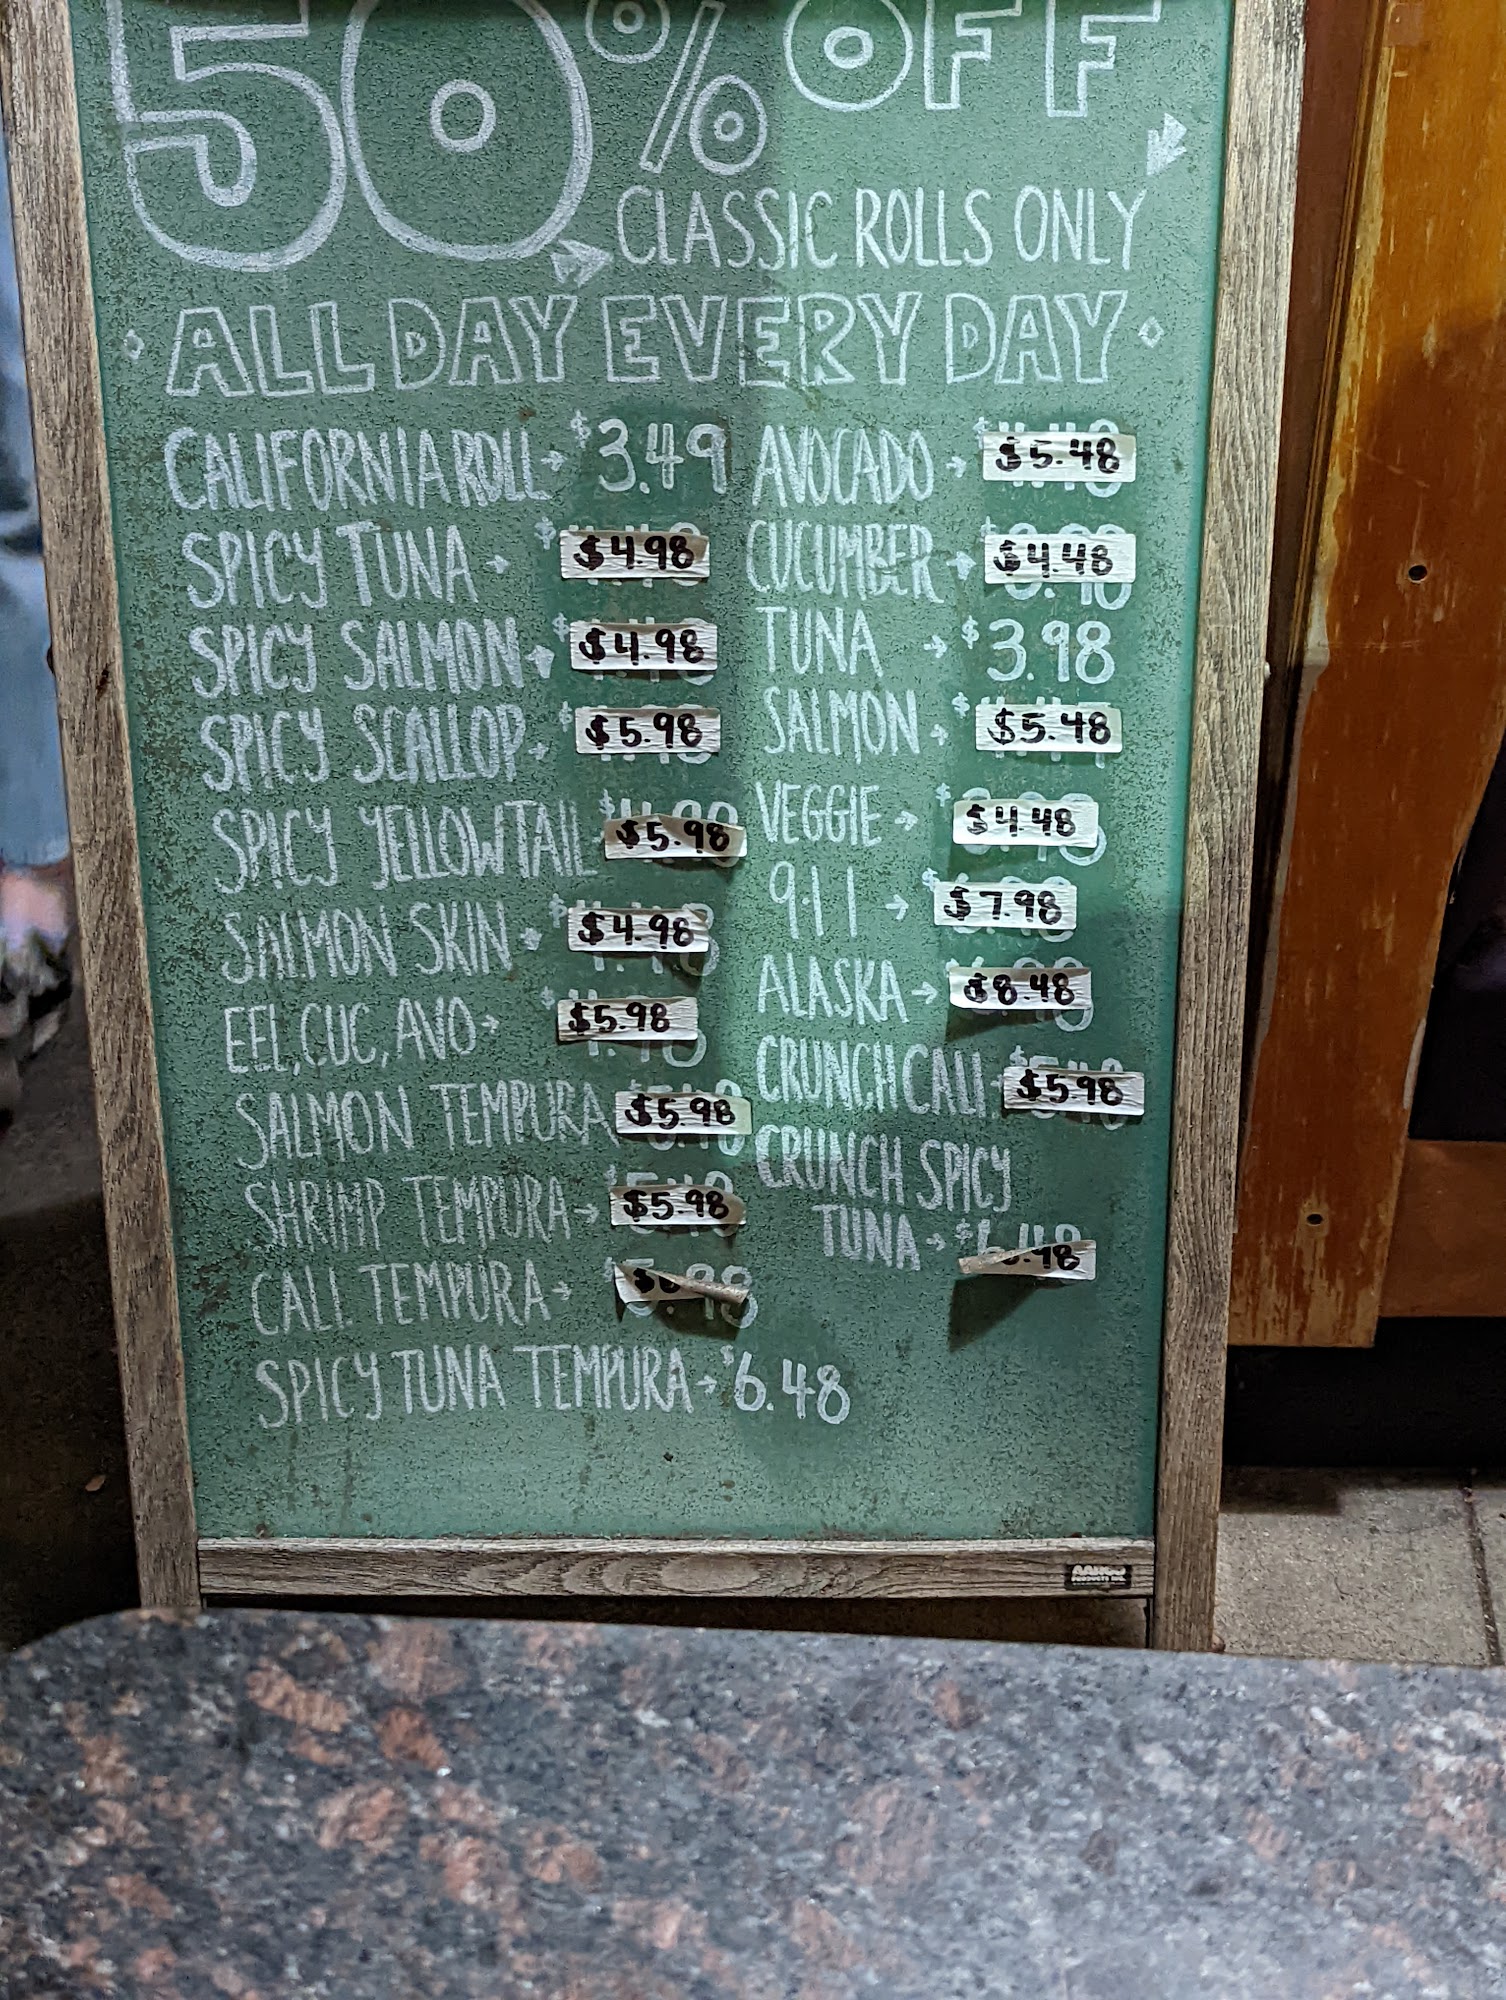 50% OFF
CLASSIC ROLLS ONLY
ALL DAY EVERY DAY
CALIFORNIA ROLL $3.49
SPICY TUNA $4.98
SPICY SALMON $4.98
SPICY SCALLOP $5.98
SPICY YELLOWTAIL $5.98
SALMON SKIN $4.98
EEL, CUC, AVO $5.98
SALMON TEMPURA $5.98
SHRIMP TEMPURA $5.98
CALI. TEMPURA
SPICY TUNA TEMPURA $6.48
AVOCADO $5.48
CUCUMBER $4.48
TUNA $3.98
SALMON $5.48
VEGGIE $4.48
911 $7.98
ALASKA $8.48
CRUNCH CALI. $5.98
CRUNCH SPICY
TUNA